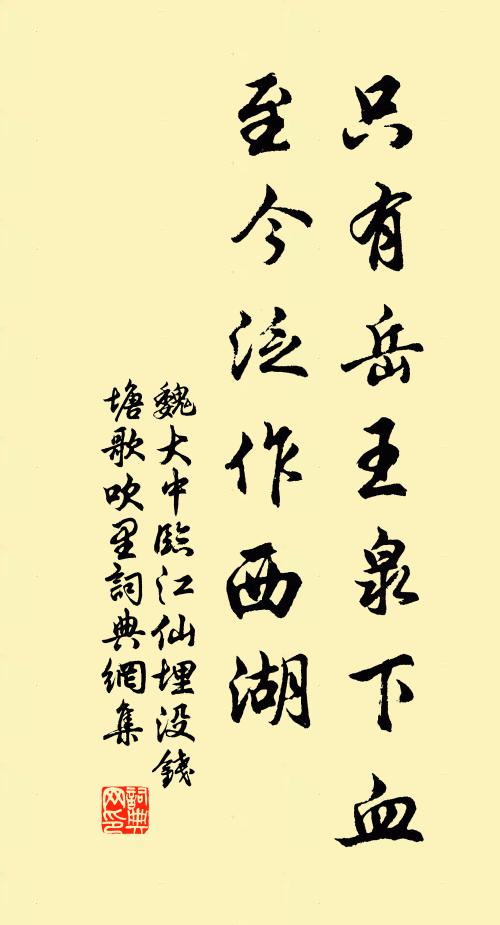 只有岳王泉下血
至今泛作西湖
魏大中臨江仙埋没錢
塘歌吹里詞典網集
詞典网印